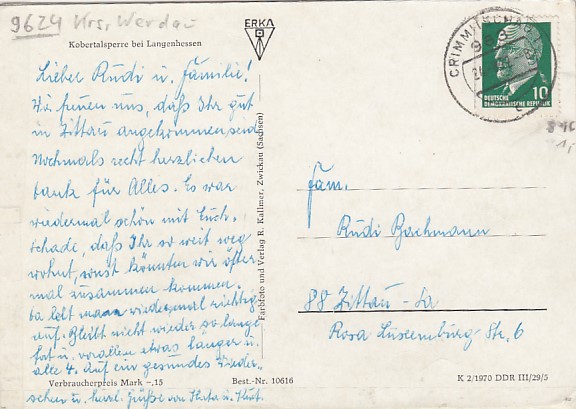 9624 Krs. Werdau
Kobertalsperre bei Langenhessen
ERKA
Lieber Rudi u. Familie!
Wir freuen uns, daß Ihr gut
in Zittau angekommen seid
Nochmals recht herzlichen
Dank für Alles. Es war
wiedermal schön mit Euch.
schade, daß Ihr so weit weg
wohnt, sonst könnten wir öfter
mal zusammen kommen.
Da lebt man wiedermal richtig
auf. Bleibt nicht wieder so lange
fort u. vorallen etwas länger u.
alle 4. Auf ein gesundes Wieder-
sehen u. herzl. Grüße von
Verbraucherpreis Mark –,15
Best.-Nr. 10616
Farbfoto und Verlag R. Kallmer, Zwickau (Sachsen)
CRIMMITSCHAU
10
DEUTSCHE
DEMOKRATISCHE REPUBLIK
Fam.
Rudi Bachmann
88 Zittau - Sa
Rosa Luxemburg Str, 6
K 2/1970 DDR III/29/5